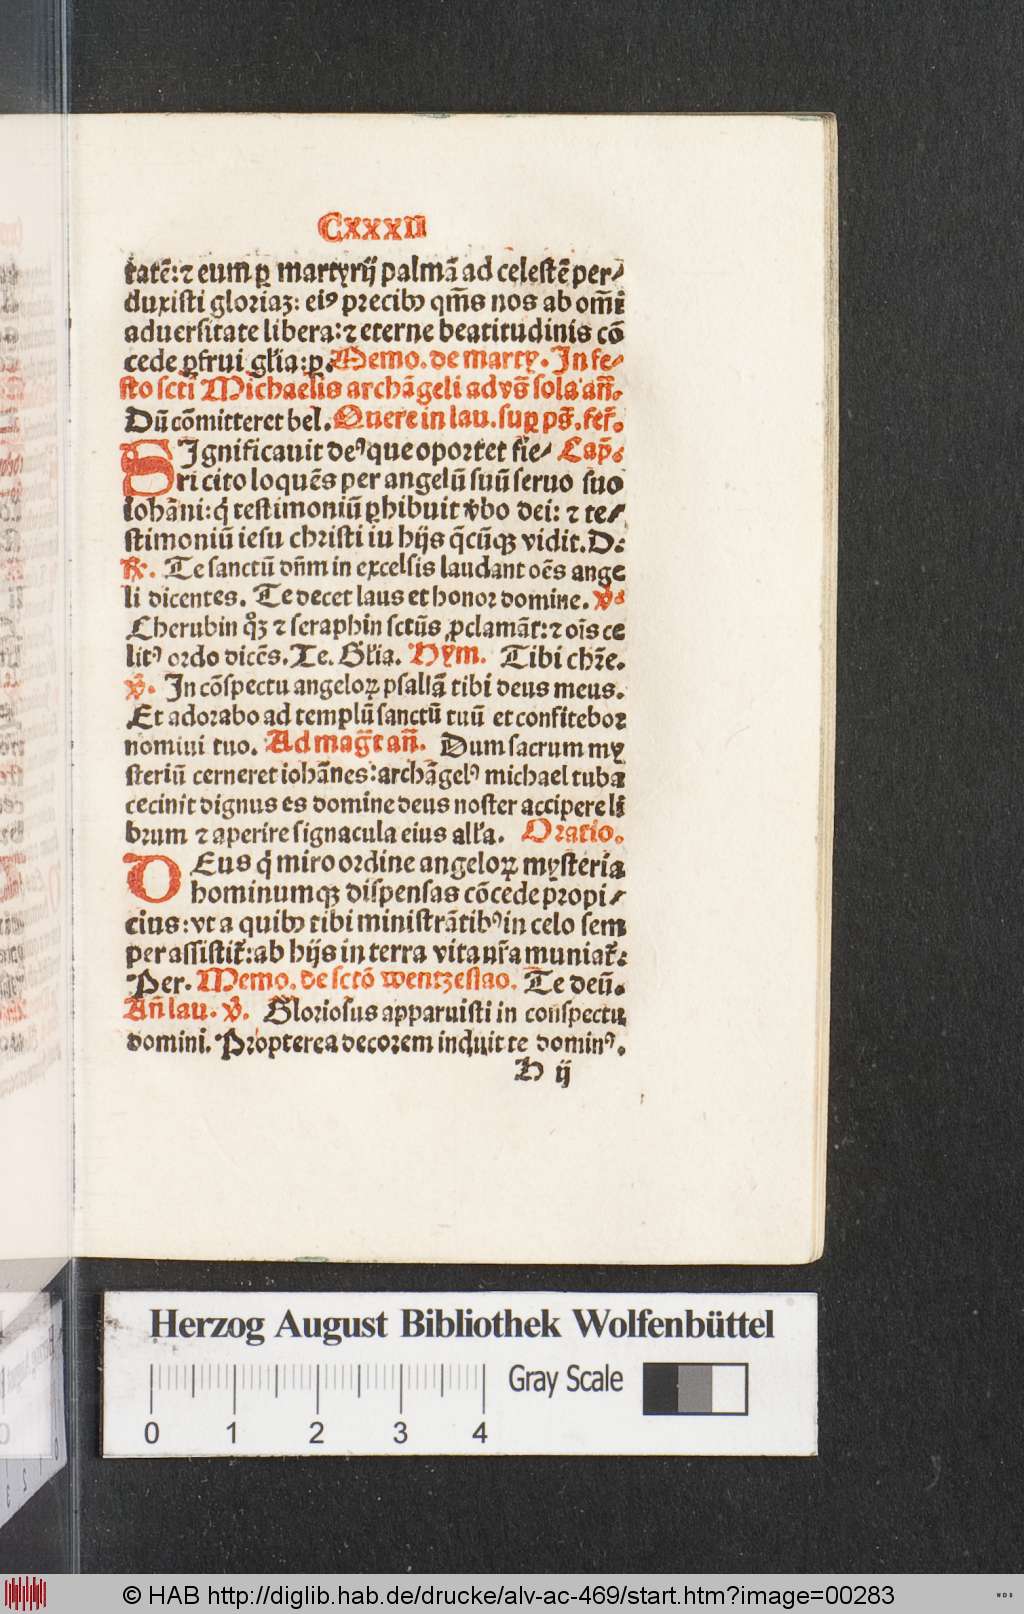 CXXXII
tatē: ⁊ eum ꝑ martyrij palmā ad celestē per⸗
duxisti gloriaꝫ: eiꝰ precibꝰ qm̄s nos ab om̄i
aduersitate libera: ⁊ eterne beatitudinis cō
cede ꝑfrui gl'ia: ꝑ. Memo. de marty. In fe⸗
sto scti Michaelis archāgeli ad vs̄ sola añ.
Dū cōmitteret bel. Quere in lau. suꝑ ps̄. fer̄.
SIgnificauit deꝰ que oportet fie⸗ Cap̄.
ri cito loquēs per angelū suū seruo suo
iohāni: q̄ testimoniū ꝑhibuit v̄bo dei: ⁊ te⸗
stimoniū iesu christi iu hijs q̄cūqꝫ vidit. D:
℟. Te sanctū dn̄m in excelsis laudant oēs ange
li dicentes. Te decet laus et honor domine. ℣.
Cherubin qꝫ ⁊ seraphin sctūs ꝓclamāt: ⁊ oīs ce
litꝰ ordo dicēs. Te. Gl'ia. Hym. Tibi chr̄e.
℣. In cōspectu angeloꝝ psallā tibi deus meus.
Et adorabo ad templū sanctū tuū et confitebor
nomini tuo. Ad maḡt añ. Dum sacrum my
steriū cerneret iohānes: archāgelꝰ michael tuba
cecinit dignus es domine deus noster accipere li
brum ⁊ aperire signacula eius all'a. Oratio.
DEus q̄ miro ordine angeloꝝ mysteria
hominumqꝫ dispensas cōcede propi⸗
cius: vt a quibꝰ tibi ministrātibꝰ in celo sem
per assistit̄: ab hijs in terra vita nr̄a muniat̄:
Per. Memo. de sctō wentzeslao. Te deū.
Añ lau. ℣. Gloriosus apparuisti in conspectu
domini. Propterea decorem induit te dominꝰ.
H ij
Herzog August Bibliothek Wolfenbüttel
Gray Scale
0 1 2 3 4
© HAB http://diglib.hab.de/drucke/alv-ac-469/start.htm?image=00283